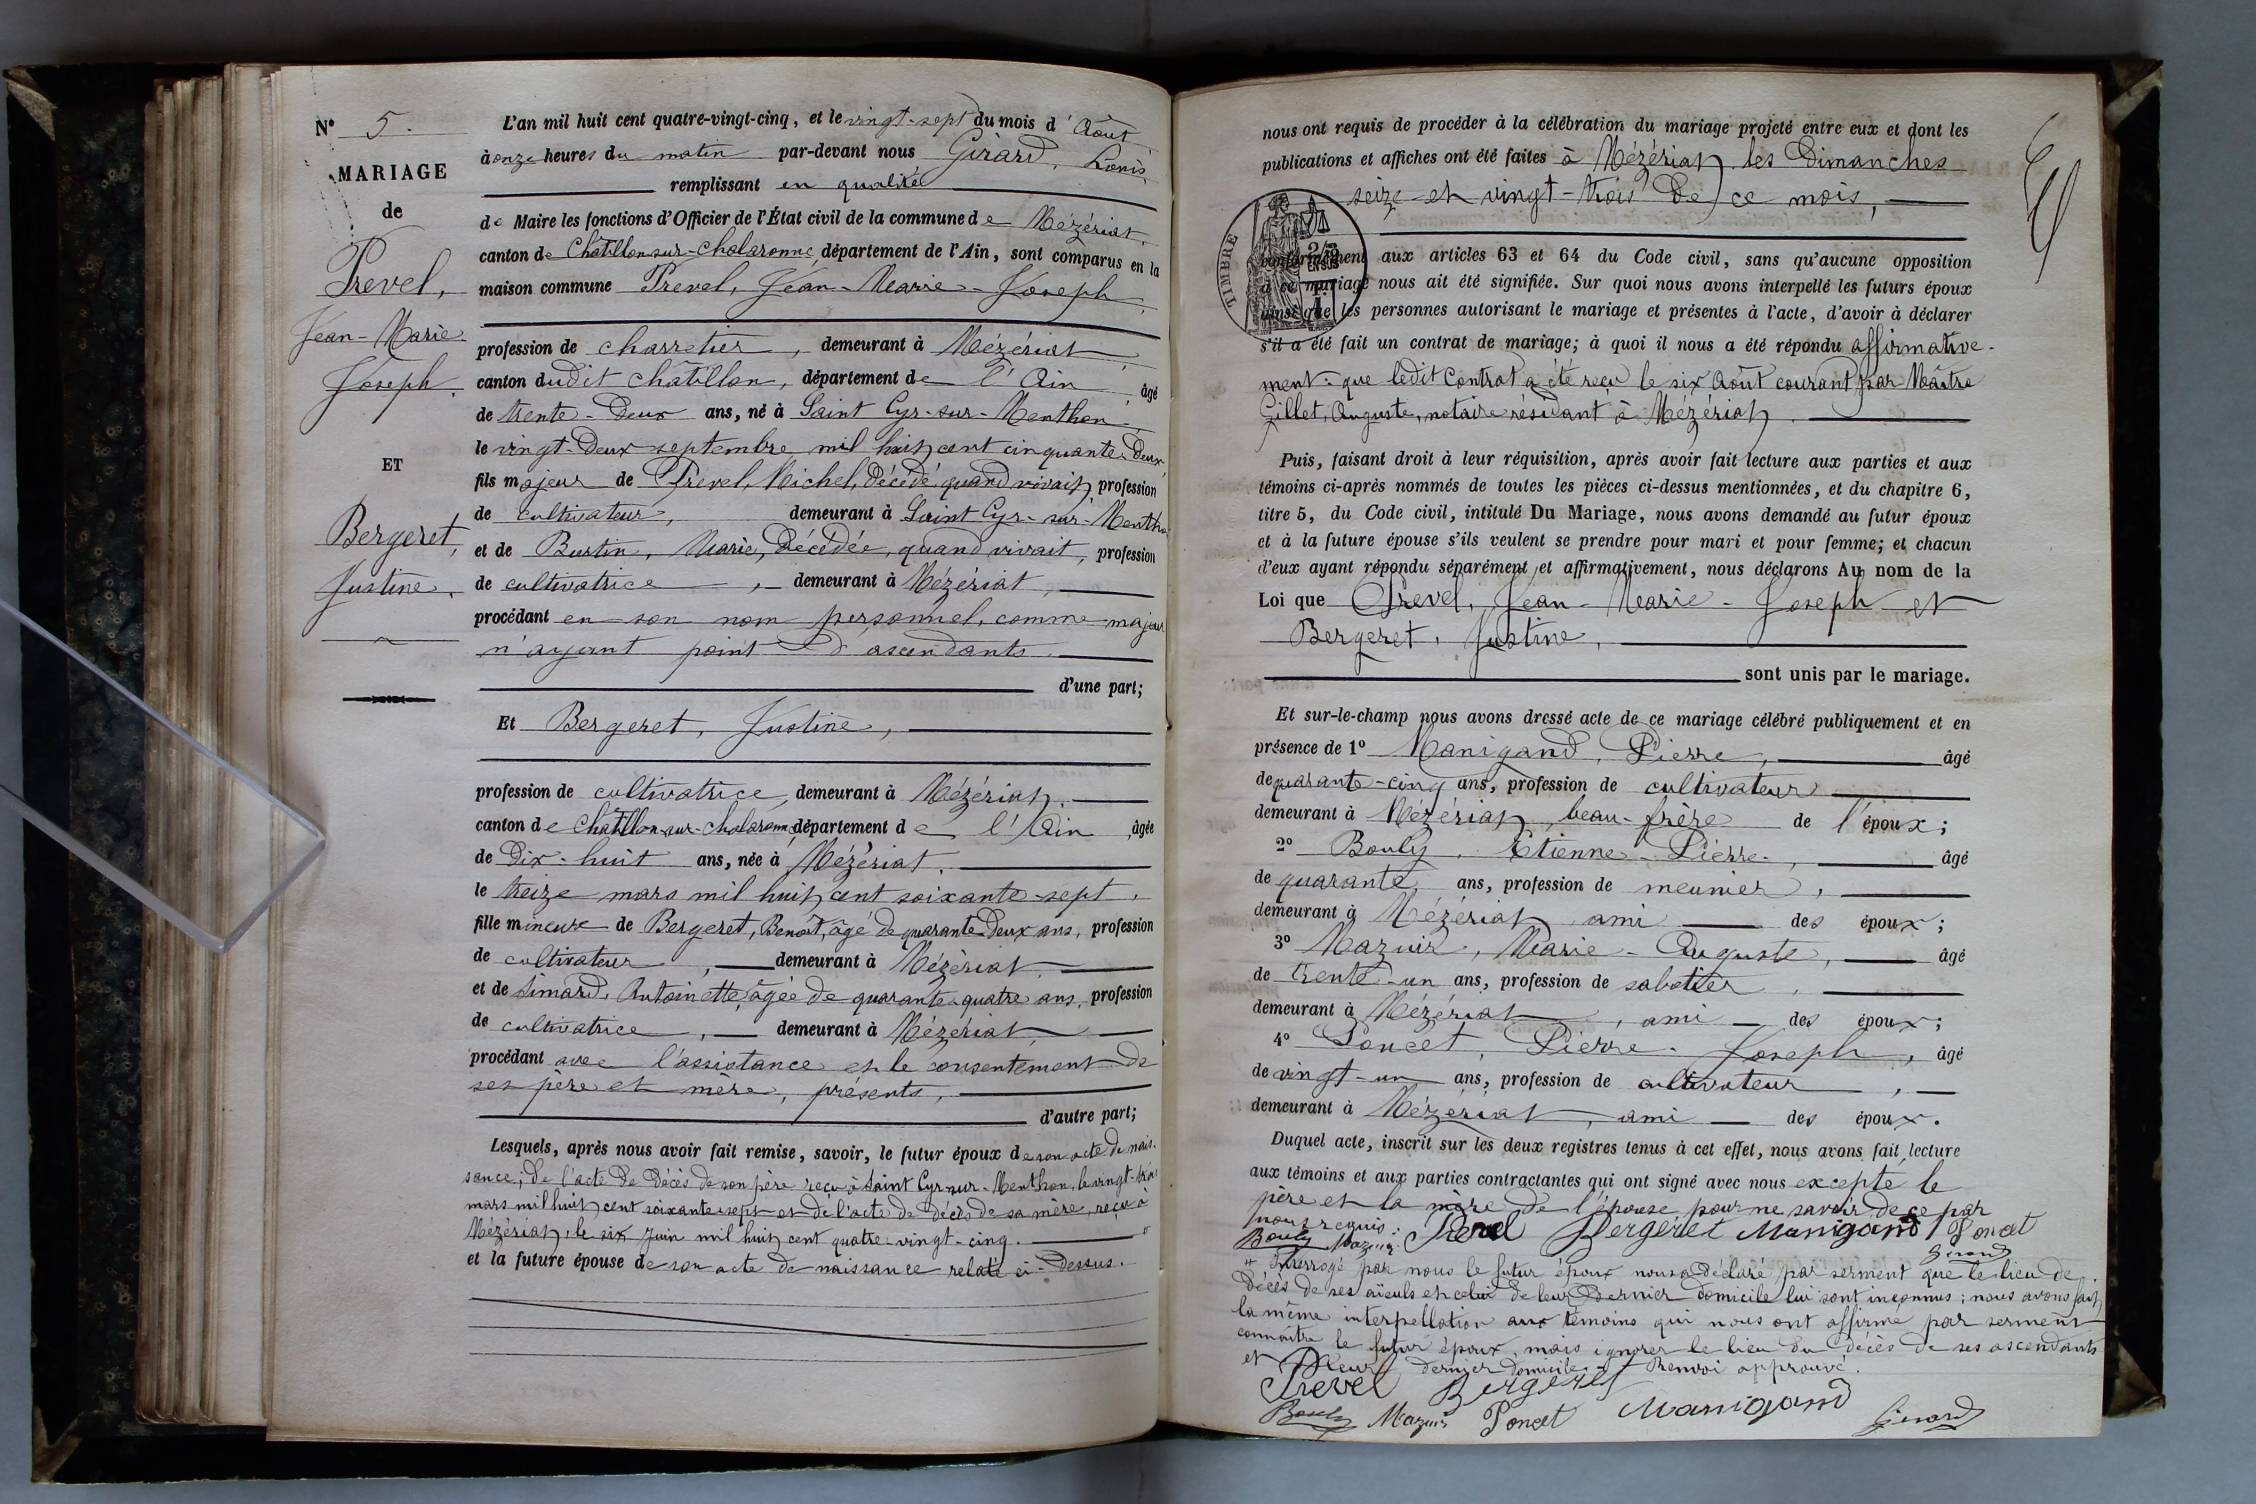 N° 5.
MARIAGE
de
Prevel,
Jean-Marie
Joseph.
ET
Bergeret,
Justine.
L'an mil huit cent quatre-vingt-cinq, et le vingt-sept du mois d'Août
à onze heures du matin par-devant nous Girard, Louis
remplissant en qualité
de Maire les fonctions d'Officier de l'État civil de la commune de Mézériat,
canton de Châtillon-sur-Chalaronne, département de l'Ain, sont comparus en la
maison commune Prevel, Jean-Marie-Joseph,
profession de charretier, demeurant à Mézériat,
canton dudit Châtillon, département de l'Ain, âgé
de trente-deux ans, né à Saint Cyr-sur-Menthon,
le vingt-deux septembre mil huit cent cinquante-deux,
fils majeur de Prevel, Michel, décédé quand vivait, profession
de cultivateur, demeurant à Saint Cyr-sur-Menthon
et de Burtin, Marie, décédée, quand vivait, profession
de cultivatrice, demeurant à Mézériat,
procédant en son nom personnel, comme majeur
n'ayant point d'ascendants
d'une part;
Et Bergeret, Justine,
profession de cultivatrice, demeurant à Mézériat,
canton de Châtillon-sur-Chalaronne, département de l'Ain, âgée
de dix-huit ans, née à Mézériat,
le treize mars mil huit cent soixante-sept,
fille mineure de Bergeret, Benoît, âgé de quarante-deux ans, profession
de cultivateur, demeurant à Mézériat,
et de Limard, Antoinette, âgée de quarante-quatre ans, profession
de cultivatrice, demeurant à Mézériat,
procédant avec l'assistance et le consentement de
ses père et mère, présents,
d'autre part;
Lesquels, après nous avoir fait remise, savoir, le futur époux de son acte de nais-
sance; de l'acte de décès de son père reçu à Saint Cyr-sur-Menthon, le vingt-trois
mars mil huit cent soixante-sept et de l'acte de décès de sa mère, reçu à
Mézériat, le six Juin mil huit cent quatre-vingt-cinq. "
et la future épouse de son acte de naissance relaté ci-dessus.
nous ont requis de procéder à la célébration du mariage projeté entre eux et dont les
publications et affiches ont été faites à Mézériat les dimanches
seize et vingt-trois de ce mois,
TIMBRE
conformément aux articles 63 et 64 du Code civil, sans qu'aucune opposition
à ce mariage nous ait été signifiée. Sur quoi nous avons interpellé les futurs époux
ainsi que les personnes autorisant le mariage et présentes à l'acte, d'avoir à déclarer
s'il a été fait un contrat de mariage; à quoi il nous a été répondu affirmative-
ment: que ledit contrat a été reçu le six Août courant par Maître
Gillet, Auguste, notaire résidant à Mézériat.
Puis, faisant droit à leur réquisition, après avoir fait lecture aux parties et aux
témoins ci-après nommés de toutes les pièces ci-dessus mentionnées, et du chapitre 6,
titre 5, du Code civil, intitulé Du Mariage, nous avons demandé au futur époux
et à la future épouse s'ils veulent se prendre pour mari et pour femme; et chacun
d'eux ayant répondu séparément et affirmativement, nous déclarons Au nom de la
Loi que Prevel, Jean-Marie-Joseph et
Bergeret, Justine,
sont unis par le mariage.
Et sur-le-champ nous avons dressé acte de ce mariage célébré publiquement et en
présence de 1° Manigand, Pierre, âgé
de quarante-cinq ans, profession de cultivateur
demeurant à Mézériat, beau-frère de l'époux;
2° Bouly, Etienne-Pierre, âgé
de quarante ans, profession de meunier,
demeurant à Mézériat, ami des époux;
3° Mazuir, Marie-Auguste, âgé
de trente-un ans, profession de sabotier,
demeurant à Mézériat, ami des époux;
4° Poncet, Pierre-Joseph, âgé
de vingt-un ans, profession de cultivateur,
demeurant à Mézériat, ami des époux.
Duquel acte, inscrit sur les deux registres tenus à cet effet, nous avons fait lecture
aux témoins et aux parties contractantes qui ont signé avec nous excepté le
père et la mère de l'épouse pour ne savoir de ce par
nous requis:
Bouly Mazuir Prevel Bergeret Manigand Poncet
Girard
" Interrogé par nous le futur époux nous a déclaré par serment que le lieu de
décès de ses aïeuls et celui de leur dernier domicile lui sont inconnus; nous avons fait
la même interpellation aux témoins qui nous ont affirmé par serment
connaître le futur époux, mais ignorer le lieu du décès de ses ascendants
et leur dernier domicile. Renvoi approuvé.
Prevel Bergeret
Bouly Mazuir Poncet Manigand Girard